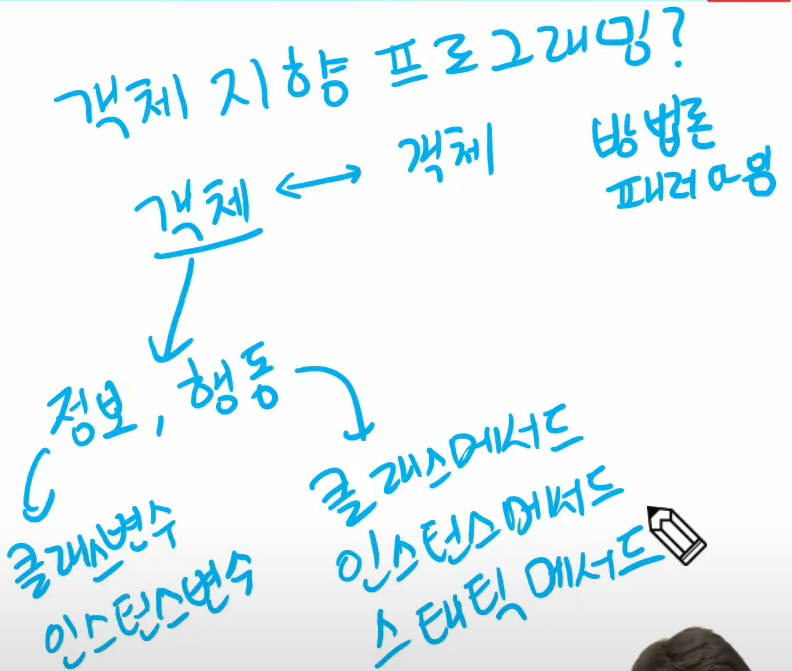 객체 지향 프로그래밍?
객체 ↔ 객체
방법론
패러다임
정보, 행동
클래스변수
인스턴스변수
클래스메서드
인스턴스메서드
스태틱 메서드